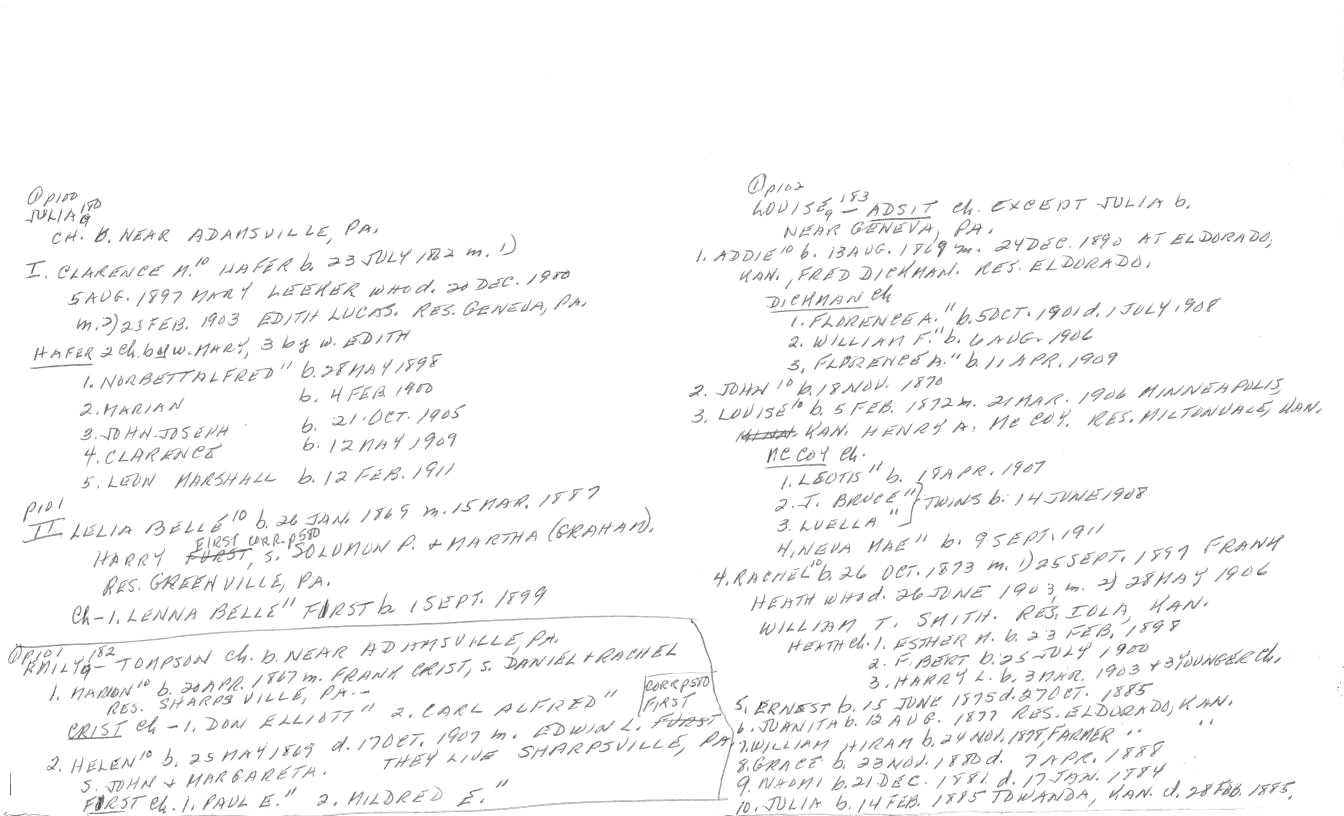 ① P100
JULIA9 180
CH. b. NEAR ADAMSVILLE, PA.
I. CLARENCE N.10 HAFER b. 23 JULY 1872 m. 1)
5 AUG. 1897 MARY LEEKER WHO d. 20 DEC. 1900
m. 2) 25 FEB. 1903 EDITH LUCAS. RES. GENEVA, PA.
HAFER 2 Ch. by w. MARY, 3 by w. EDITH
1. NORBETT ALFRED" b. 28 MAY 1898
2. MARIAN b. 4 FEB 1900
3. JOHN JOSEPH b. 21 OCT. 1905
4. CLARENCE b. 12 MAY 1909
5. LEON MARSHALL b. 12 FEB. 1911
P101
II LELIA BELLE10 b. 26 JAN. 1869 m. 15 MAR. 1887
FIRST CORR. P580
HARRY FURST, S. SOLOMON P. + MARTHA (GRAHAM).
RES. GREENVILLE, PA.
Ch - 1. LENNA BELLE" FIRST b. 1 SEPT. 1899
① P101
EMILY9 182 - TOMPSON Ch. b. NEAR ADAMSVILLE, PA.
1. MARION10 b. 20 APR. 1867 m. FRANK CRIST, S. DANIEL + RACHEL
RES. SHARPSVILLE, PA. -
CRIST Ch - 1. DON ELLIOTT" 2. CARL ALFRED"
CORR P580
FIRST
2. HELEN10 b. 25 MAY 1869 d. 17 OCT. 1907 m. EDWIN L. FURST
S. JOHN + MARGARETA. THEY LIVE SHARPSVILLE, PA.
FIRST Ch. 1. PAUL E." 2. MILDRED E."
① P102
LOUISE9 183 - ADSIT Ch. EXCEPT JULIA b.
NEAR GENEVA, PA.
1. ADDIE10 b. 13 AUG. 1869 m. 24 DEC. 1890 AT ELDORADO,
KAN., FRED DICKMAN. RES. ELDORADO.
DICKMAN Ch
1. FLORENCE A." b. 5 OCT. 1901 d. 1 JULY 1908
2. WILLIAM F." b. 6 AUG. 1906
3. FLORENCE A." b. 11 APR. 1909
2. JOHN10 b. 18 NOV. 1870
3. LOUISE10 b. 5 FEB. 1872 m. 21 MAR. 1906 MINNEAPOLIS,
MINN. KAN. HENRY A. McCOY. RES. MILTONVALE, KAN.
McCOY Ch.
1. LEOTIS" b. 18 APR. 1907
2. J. BRUCE" } TWINS b. 14 JUNE 1908
3. LUELLA "
4. NEVA MAE" b. 9 SEPT. 1911
4. RACHEL10 b. 26 OCT. 1873 m. 1) 25 SEPT. 1897 FRANK
HEATH WHO d. 26 JUNE 1903, m. 2) 28 MAY 1906
WILLIAM T. SMITH. RES. IOLA, KAN.
HEATH Ch. 1. ESTHER M. b. 23 FEB. 1898
2. F. BERT b. 25 JULY 1900
3. HARRY L. b. 3 MAR. 1903 + 3 YOUNGER Ch.
5. ERNEST b. 15 JUNE 1875 d. 27 OCT. 1885
6. JUANITA b. 12 AUG. 1877 RES. ELDORADO, KAN.
7. WILLIAM HIRAM b. 24 NOV. 1878, FARMER " "
8. GRACE b. 23 NOV. 1880 d. 7 APR. 1888
9. NAOMI b. 21 DEC. 1881 d. 17 JAN. 1884
10. JULIA b. 14 FEB. 1885 TOWANDA, KAN. d. 28 FEB. 1885.